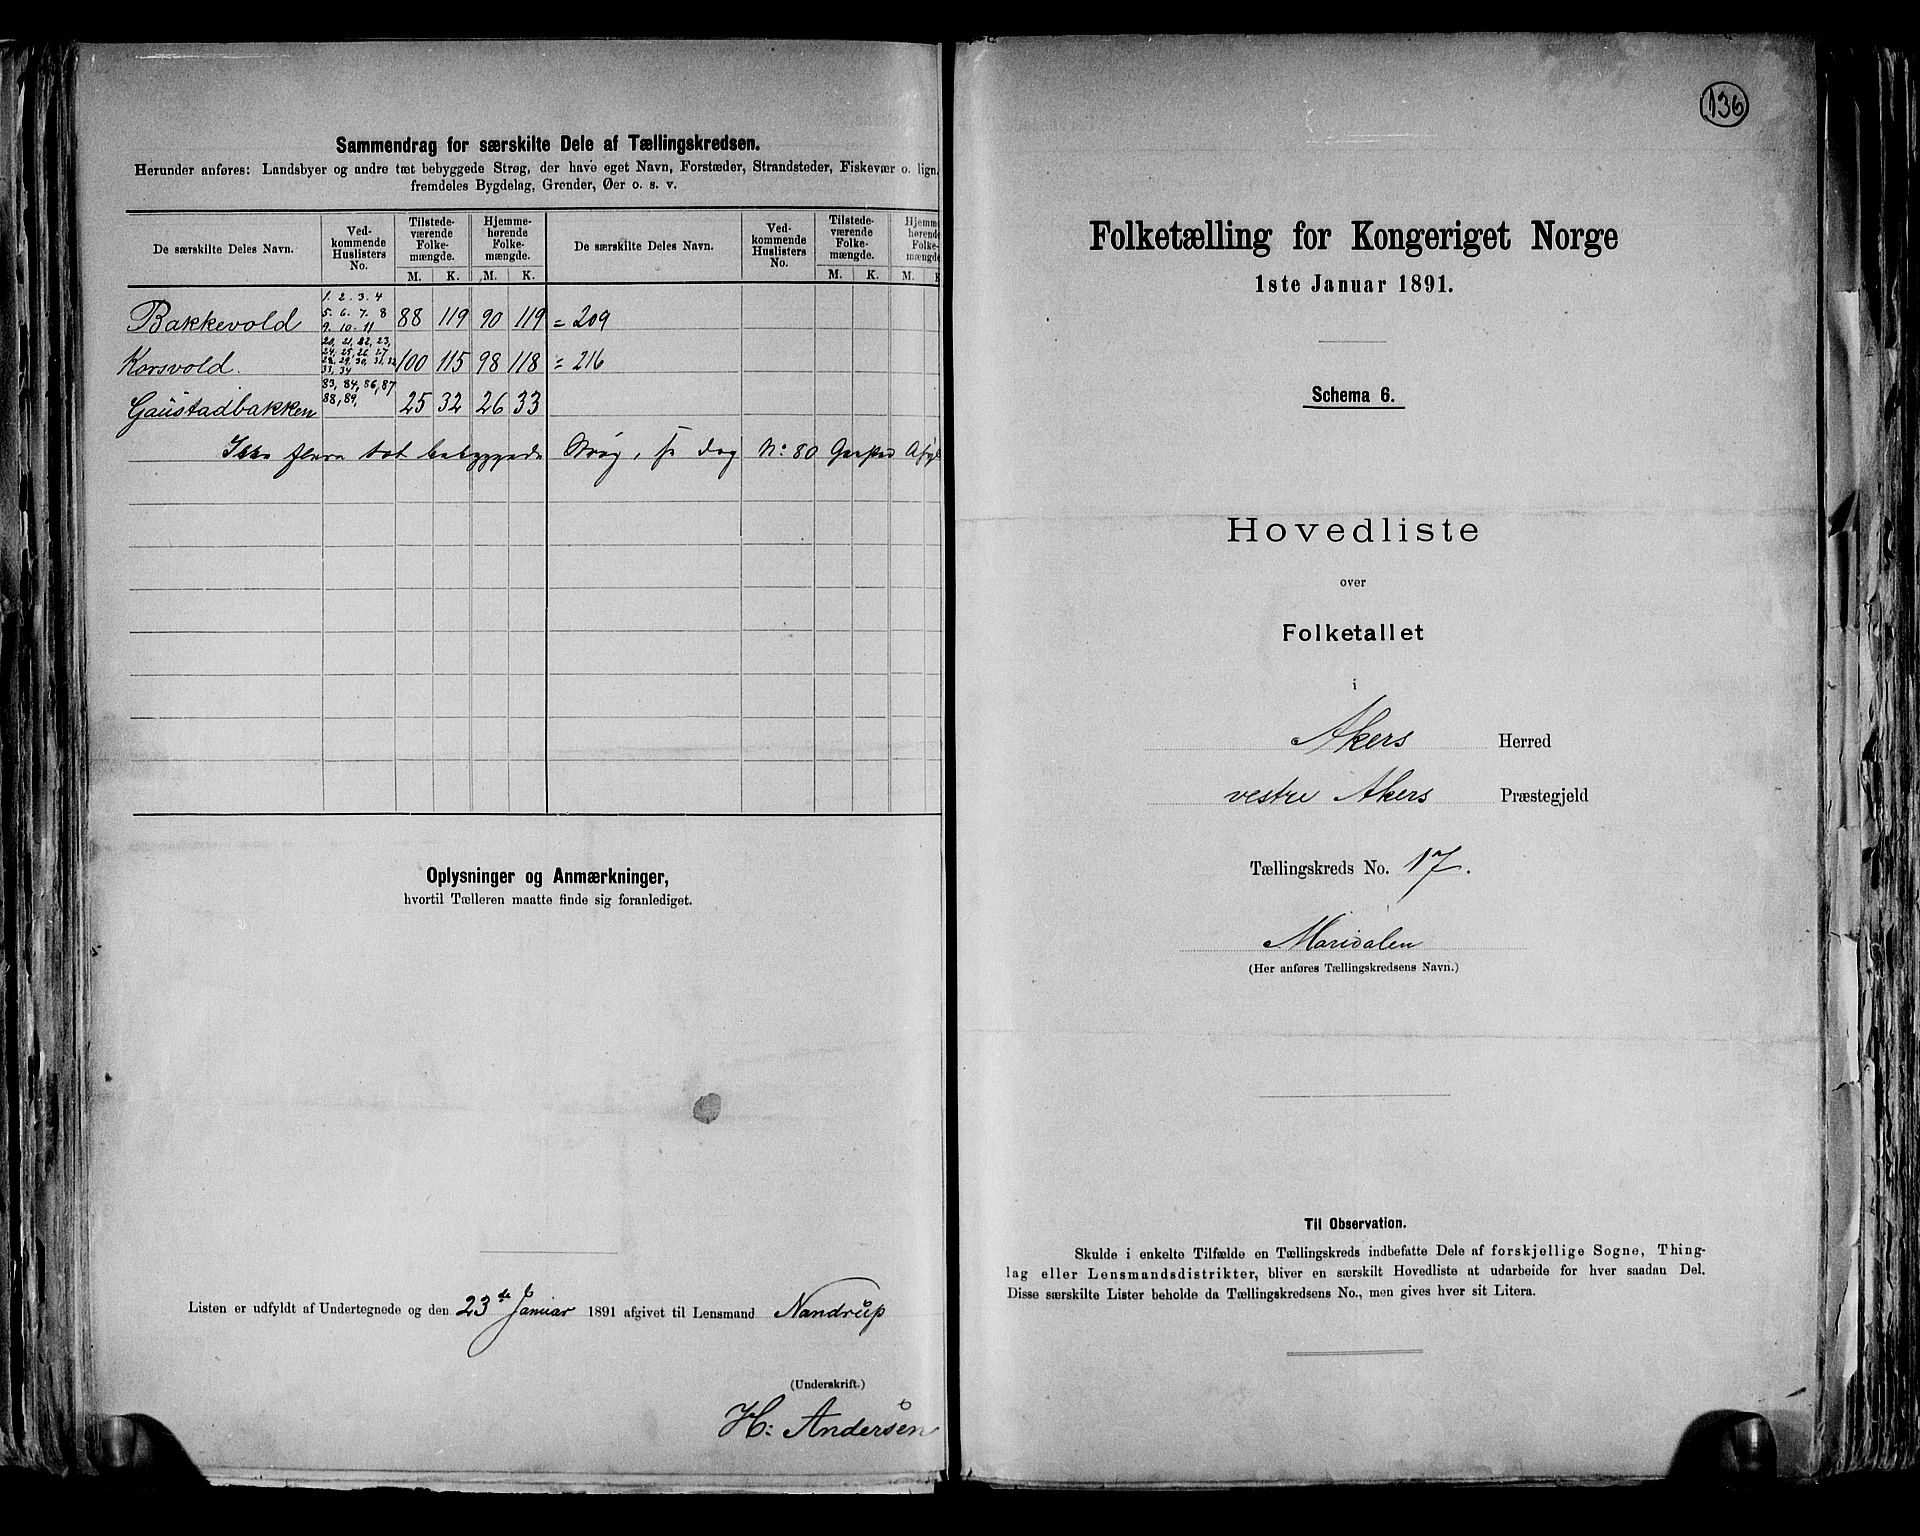 Sammendrag for særskilte Dele af Tællingskredsen.
Herunder anføres: Landsbyer og andre tæt bebyggede Strøg, der have eget Navn, Forstæder, Strandsteder, Fiskevær o. lign.
fremdeles Bygdelag, Grender, Øer o. s. v.
De særskilte Deles Navn. Ved-kommende Huslisters No. Tilstede-værende Folke-mængde. Hjemme-hørende Folke-mængde. De særskilte Deles Navn. Ved-kommende Huslisters No. Tilstede-værende Folke-mængde. Hjemme-hørende Folke-mængde
M. K. M. K. M. K. M. K
Bakkevold 1. 2. 3. 4 5. 6. 7. 8 9. 10. 11 88 119 90 119 = 209
Korsvold. 20, 21, 22, 23, 24, 25, 26, 27 28, 29, 30, 31, 32 33, 34 100 115 98 118 = 216
Gaustadbakken 83, 84, 86, 87 88, 89, 25 32 26 33
Ikke flere tæt bebyggede Strøg, dog No: 80 Gaustad
Oplysninger og Anmærkninger,
hvortil Tælleren maatte finde sig foranlediget.
Listen er udfyldt af Undertegnede og den 23de Januar 1891 afgivet til Lensmand Nandrup
(Underskrift.)
H: Andersen
136
Folketælling for Kongeriget Norge
1ste Januar 1891.
Schema 6.
Hovedliste
over
Folketallet
i
Akers Herred
vestre Akers Præstegjeld
Tællingskreds No. 17.
Maridalen
(Her anføres Tællingskredsens Navn.)
Til Observation.
Skulde i enkelte Tilfælde en Tællingskreds indbefatte Dele af forskjellige Sogne, Thing-
lag eller Lensmandsdistrikter, bliver en særskilt Hovedliste at udarbeide for hver saadan Del.
Disse særskilte Lister beholde da Tællingskredsens No., men gives hver sit Litera.